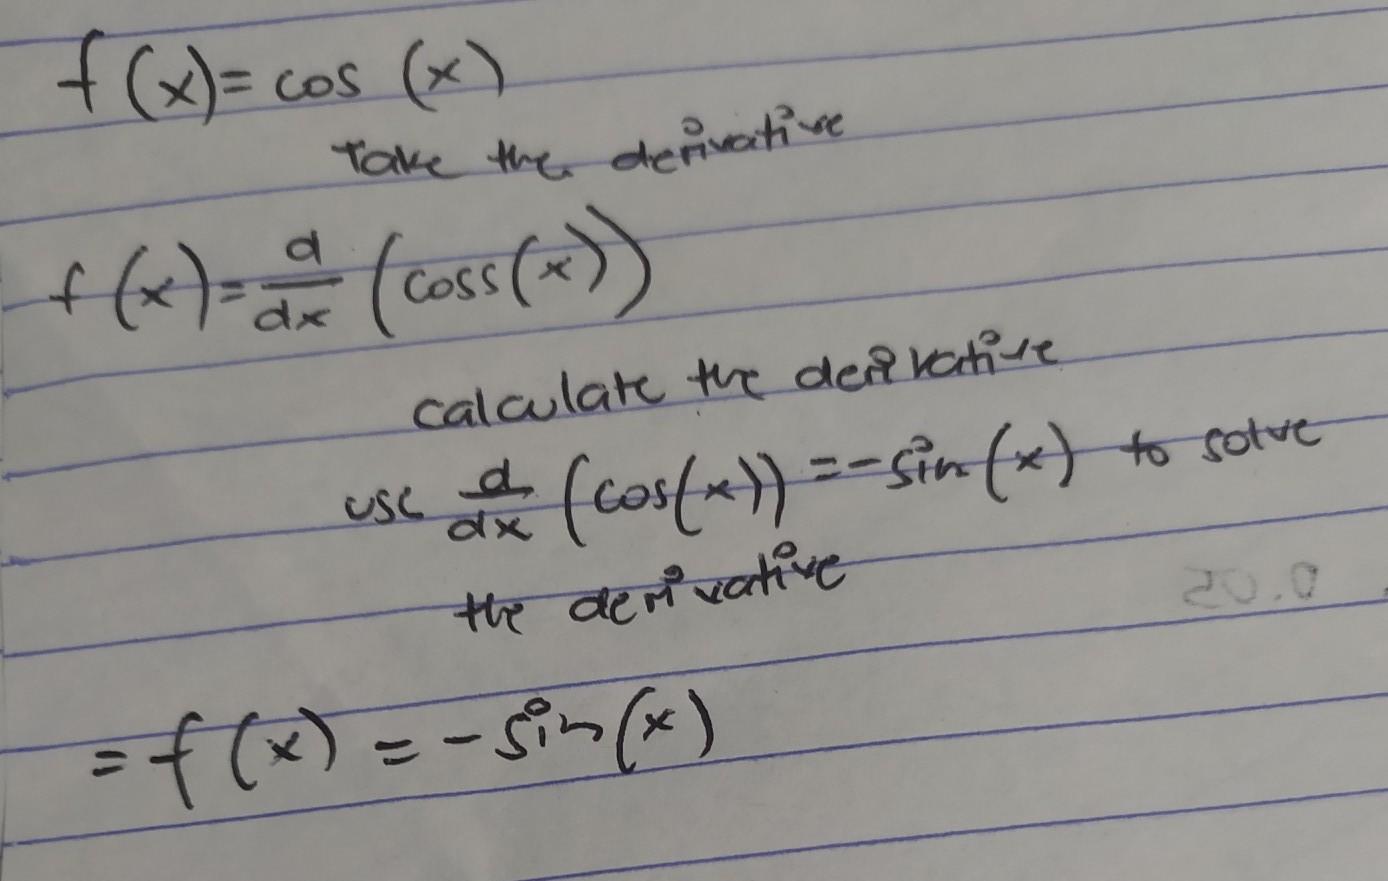 f(x) = cos (x)
Take the derivative
f(x) = d/dx (coss(x))
calculate the derivative
use d/dx (cos(x)) = -sin(x) to solve
the derivative
= f(x) = -sin(x)